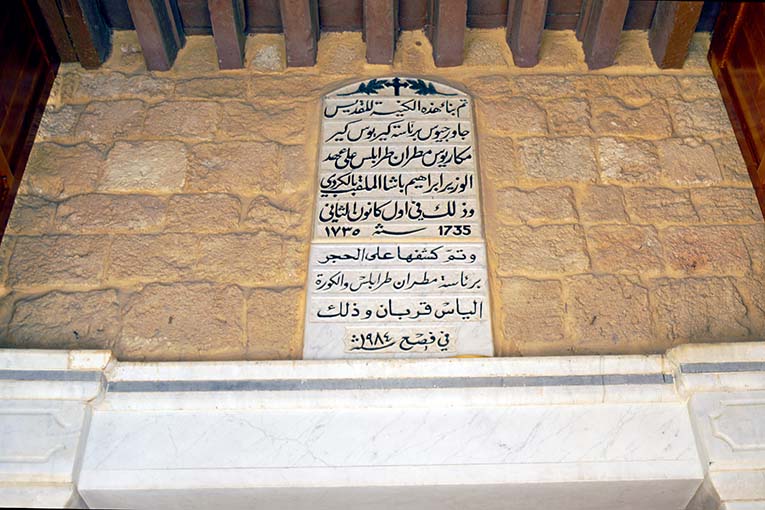 تم بناء هذه الكنيسة للقديس
جاورجيوس برئاسة كير يوس كير
مكاريوس مطران طرابلس على عهد
الوزير ابراهيم باشا الملقب بالكردي
وذلك في اول كانون الثاني
١٧٣٥ سنة 1735
وتم كشفها على الحجر
برئاسة مطران طرابلس والكورة
الياس قربان وذلك
في فصح سنة ١٩٨٤